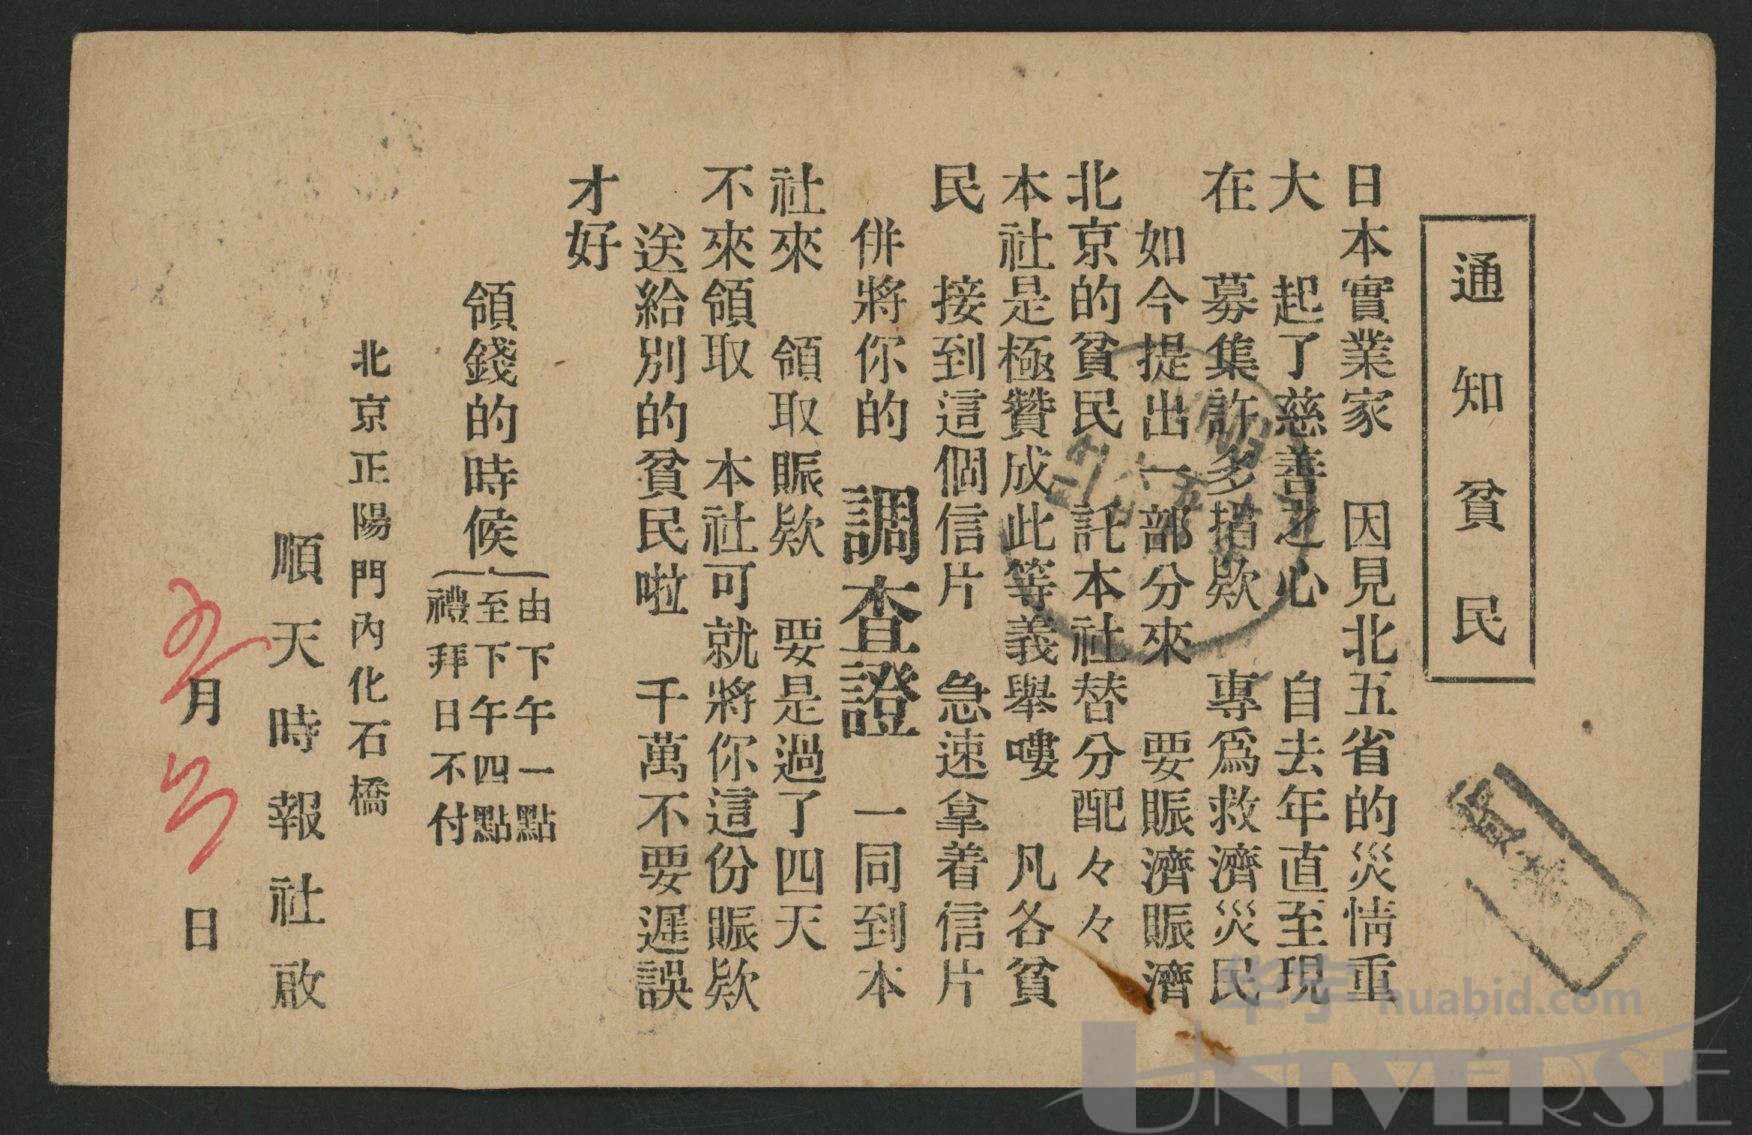 通知貧民
日本實業家　因見北五省的災情重
大　起了慈善之心　自去年直至現
在　募集許多捐欵　專爲救濟災民
如今提出一部分來　要賑濟賑濟
北京的貧民　託本社替分配々々
本社是極贊成此等義舉嘍　凡各貧
民　接到這個信片　急速拿着信片
併將你的　調查證　一同到本
社來　領取賑欵　要是過了四天
不來領取　本社可就將你這份賑欵
送給別的貧民啦　千萬不要遲誤
才好
領錢的時候
由下午一點
至下午四點
禮拜日不付
北京正陽門內化石橋
順天時報社啟
月　日
华宇 huabid.com
UNIVERSE